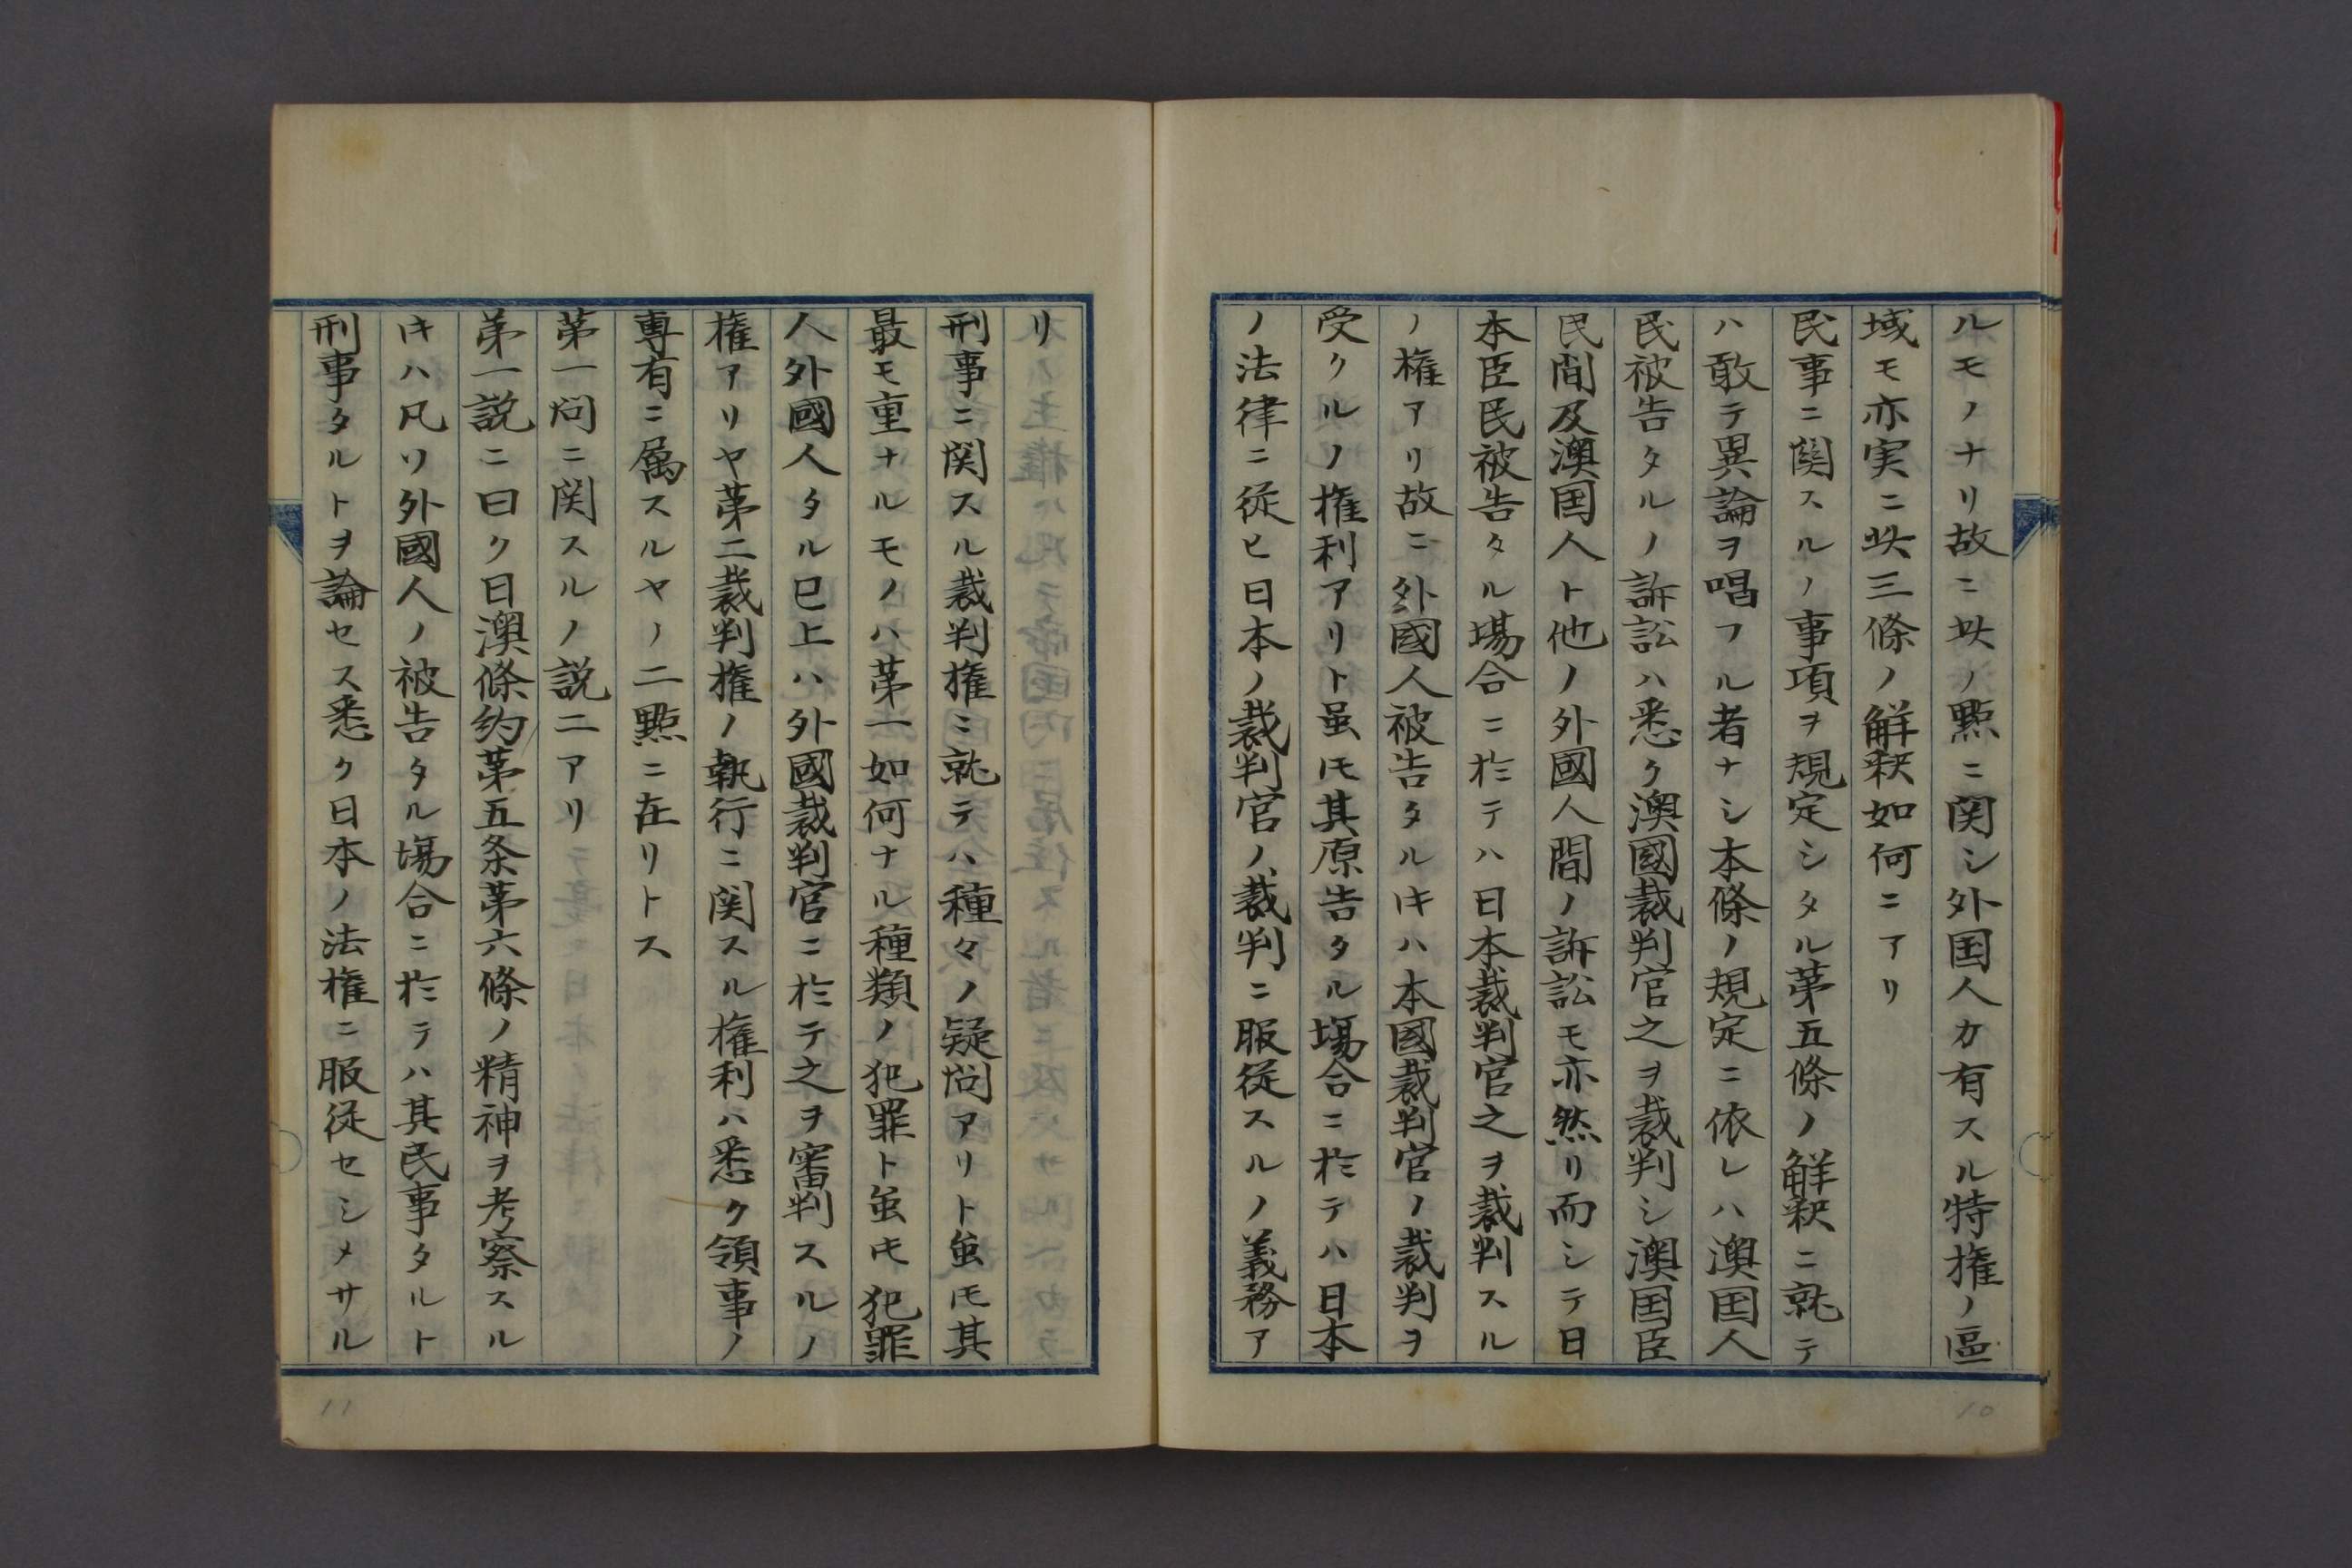 ルモノナリ故ニ此ノ點ニ関シ外国人カ有スル特権ノ區
域モ亦実ニ此三條ノ解釈如何ニアリ
民事ニ関スルノ事項ヲ規定シタル第五條ノ解釈ニ就テ
ハ敢テ異論ヲ唱フル者ナシ本條ノ規定ニ依レハ澳国人
民被告タルノ訴訟ハ悉ク澳國裁判官之ヲ裁判シ澳国臣
民間及澳国人ト他ノ外國人間ノ訴訟モ亦然リ而シテ日
本臣民被告タル場合ニ於テハ日本裁判官之ヲ裁判スル
ノ権アリ故ニ外國人被告タルキハ本國裁判官ノ裁判ヲ
受クルノ権利アリト虽モ其原告タル場合ニ於テハ日本
ノ法律ニ従ヒ日本ノ裁判官ノ裁判ニ服従スルノ義務ア
リ
刑事ニ関スル裁判権ニ就テハ種々ノ疑問アリト虽モ其
最モ重ナルモノハ第一如何ナル種類ノ犯罪ト虽モ犯罪
人外國人タル已上ハ外國裁判官ニ於テ之ヲ審判スルノ
権アリヤ第二裁判権ノ執行ニ関スル権利ハ悉ク領事ノ
専有ニ属スルヤノ二點ニ在リトス
第一問ニ関スルノ説二アリ
第一説ニ曰ク日澳條約第五条第六條ノ精神ヲ考察スル
キハ凡ソ外國人ノ被告タル場合ニ於テハ其民事タルト
刑事タルトヲ論セス悉ク日本ノ法権ニ服従セシメサル
10
11